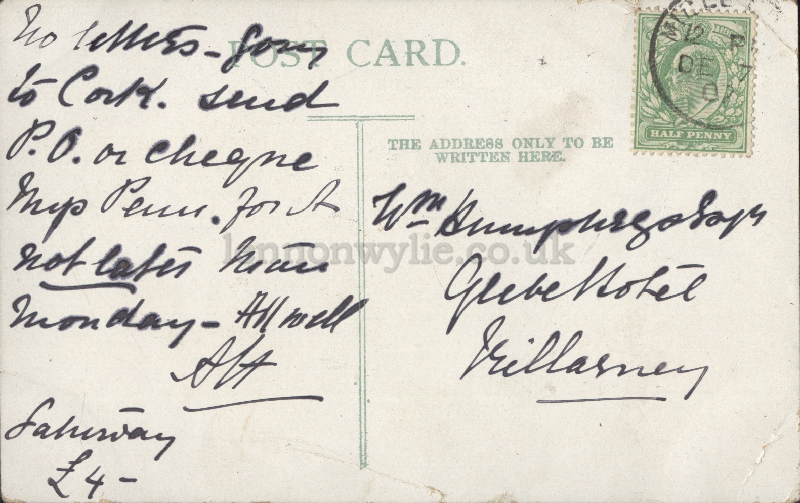 No letters - Going
to Cork. send
P.O. or cheque
Mrs Penn. for A
not later than
Monday - All well
AH
Saturday
£4-
POST CARD.
THE ADDRESS ONLY TO BE
WRITTEN HERE.
Wm Humphreys Esqr
Glebe Hotel
Killarney
HALF PENNY
DE 7
07
lennonwylie.co.uk